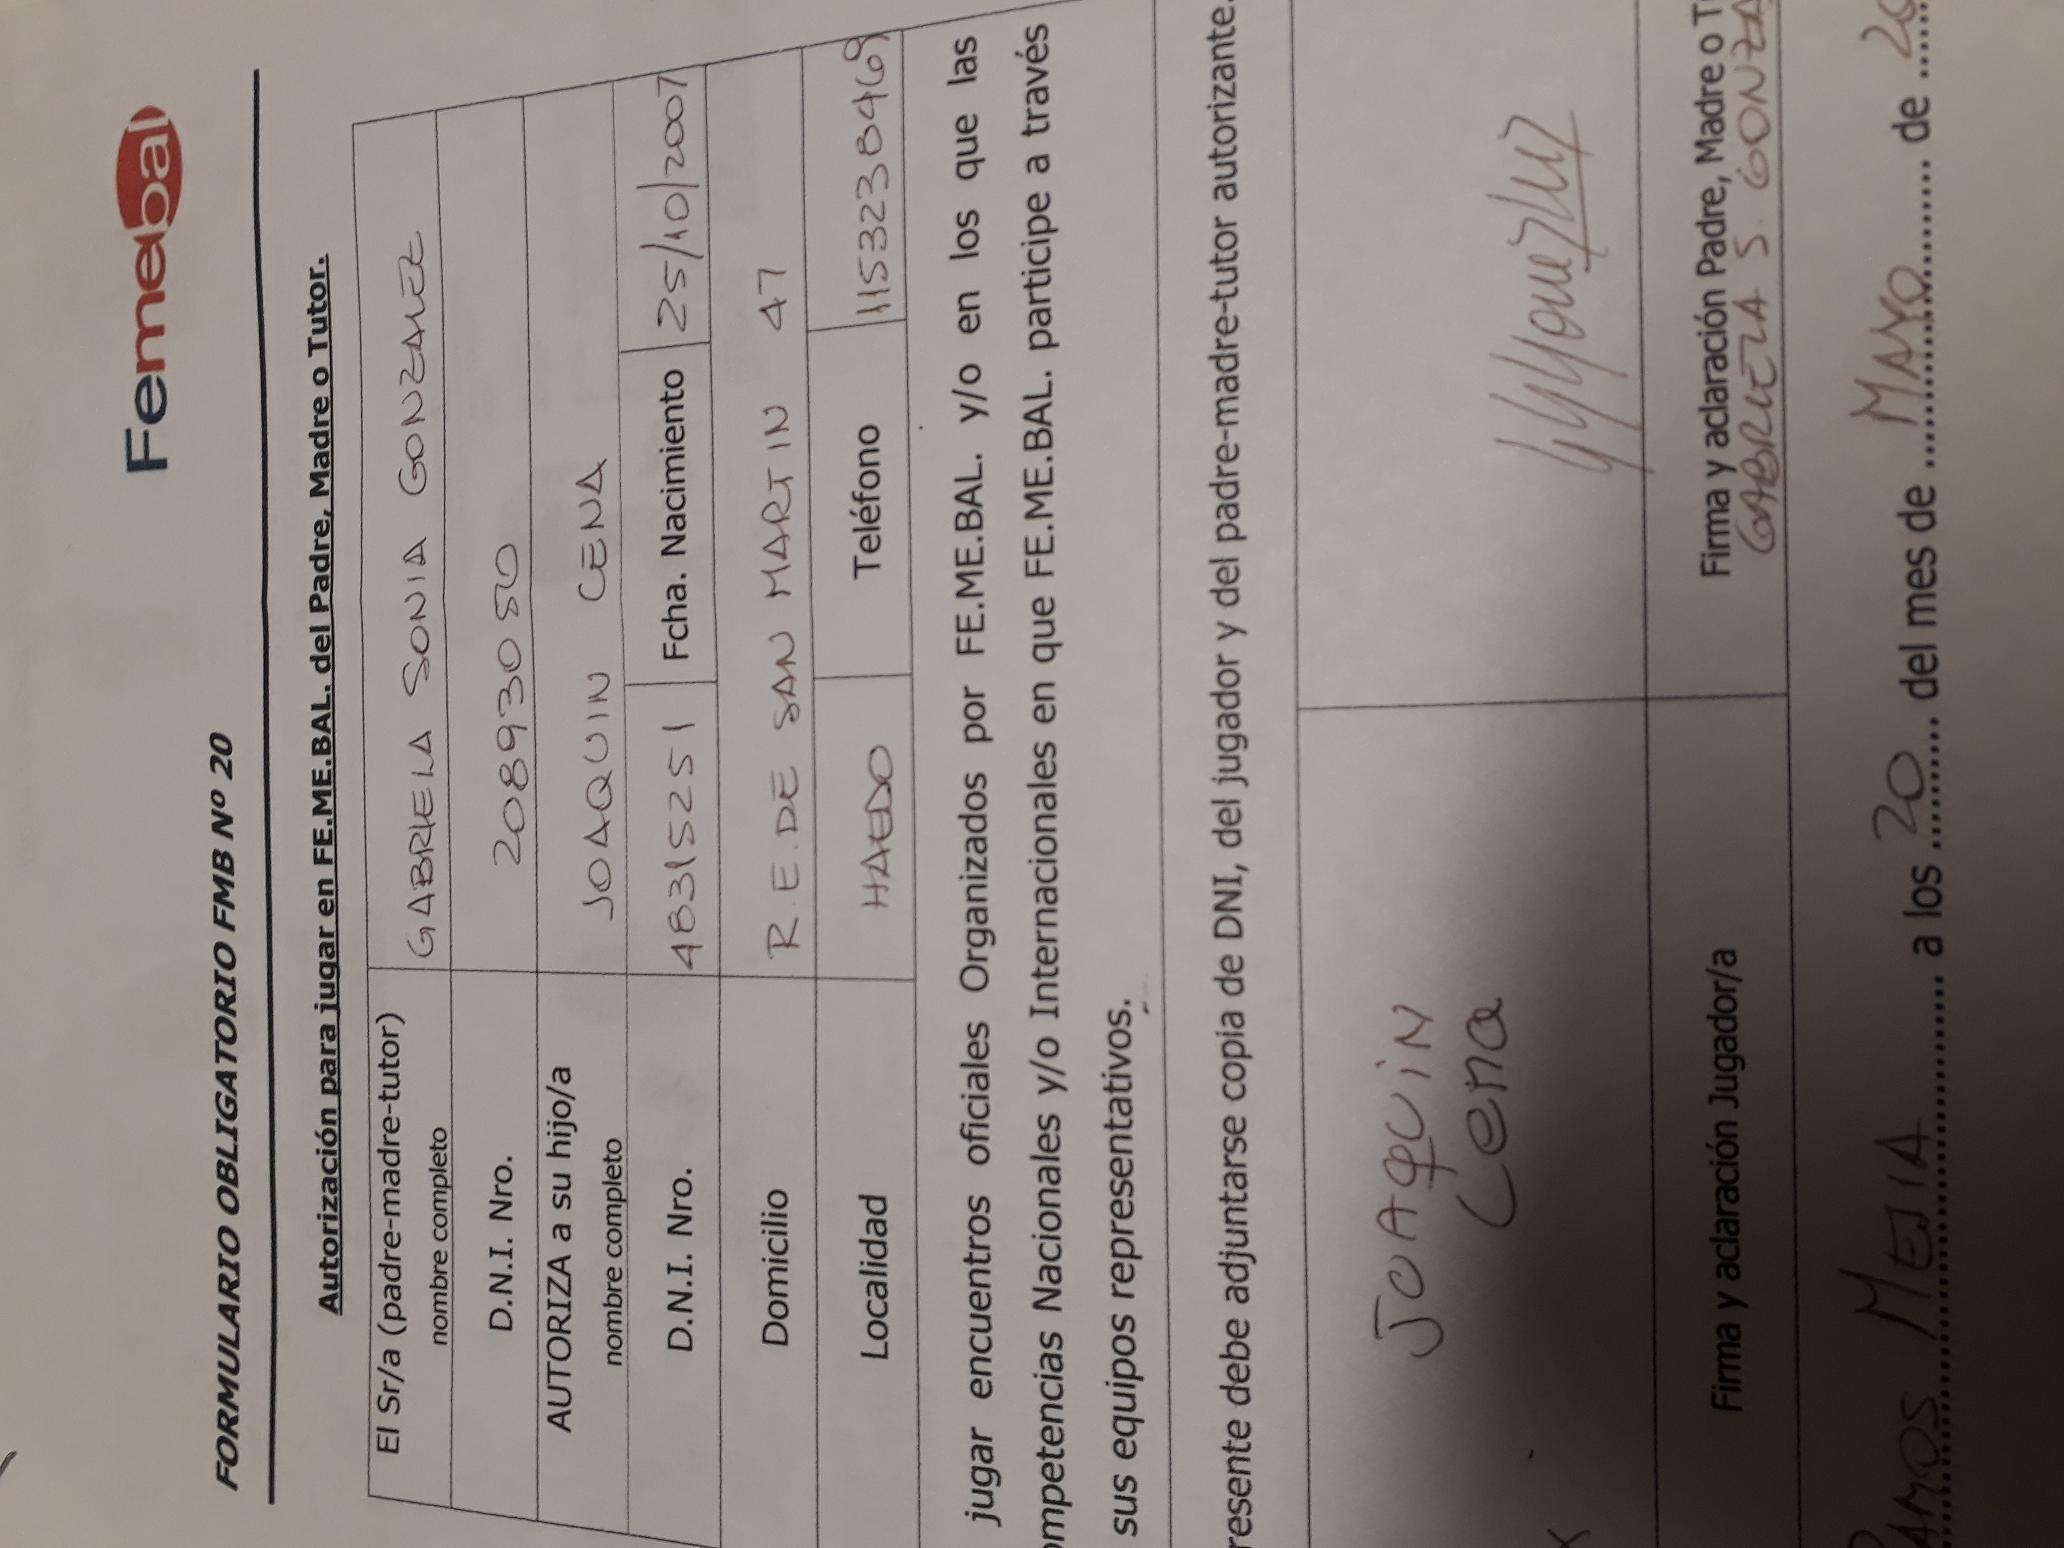 Femebal
FORMULARIO OBLIGATORIO FMB Nº 20
Autorización para jugar en FE.ME.BAL. del Padre, Madre o Tutor.
El Sr/a (padre-madre-tutor) nombre completo GABRIELA SONIA GONZALEZ
D.N.I. Nro. 20893050
AUTORIZA a su hijo/a nombre completo JOAQUIN CENA
D.N.I. Nro. 48315251 Fcha. Nacimiento 25/10/2007
Domicilio R.E.DE SAN MARTIN 47
Localidad HAEDO Teléfono 1153238469
jugar encuentros oficiales Organizados por FE.ME.BAL. y/o en los que las
ompetencias Nacionales y/o Internacionales en que FE.ME.BAL. participe a través
sus equipos representativos.
resente debe adjuntarse copia de DNI, del jugador y del padre-madre-tutor autorizante.
JOAQUIN
Cena
Firma y aclaración Jugador/a
Firma y aclaración Padre, Madre o T
GABRIELA S. GONZA
RAMOS MEJIA a los 20 del mes de MAYO de 20